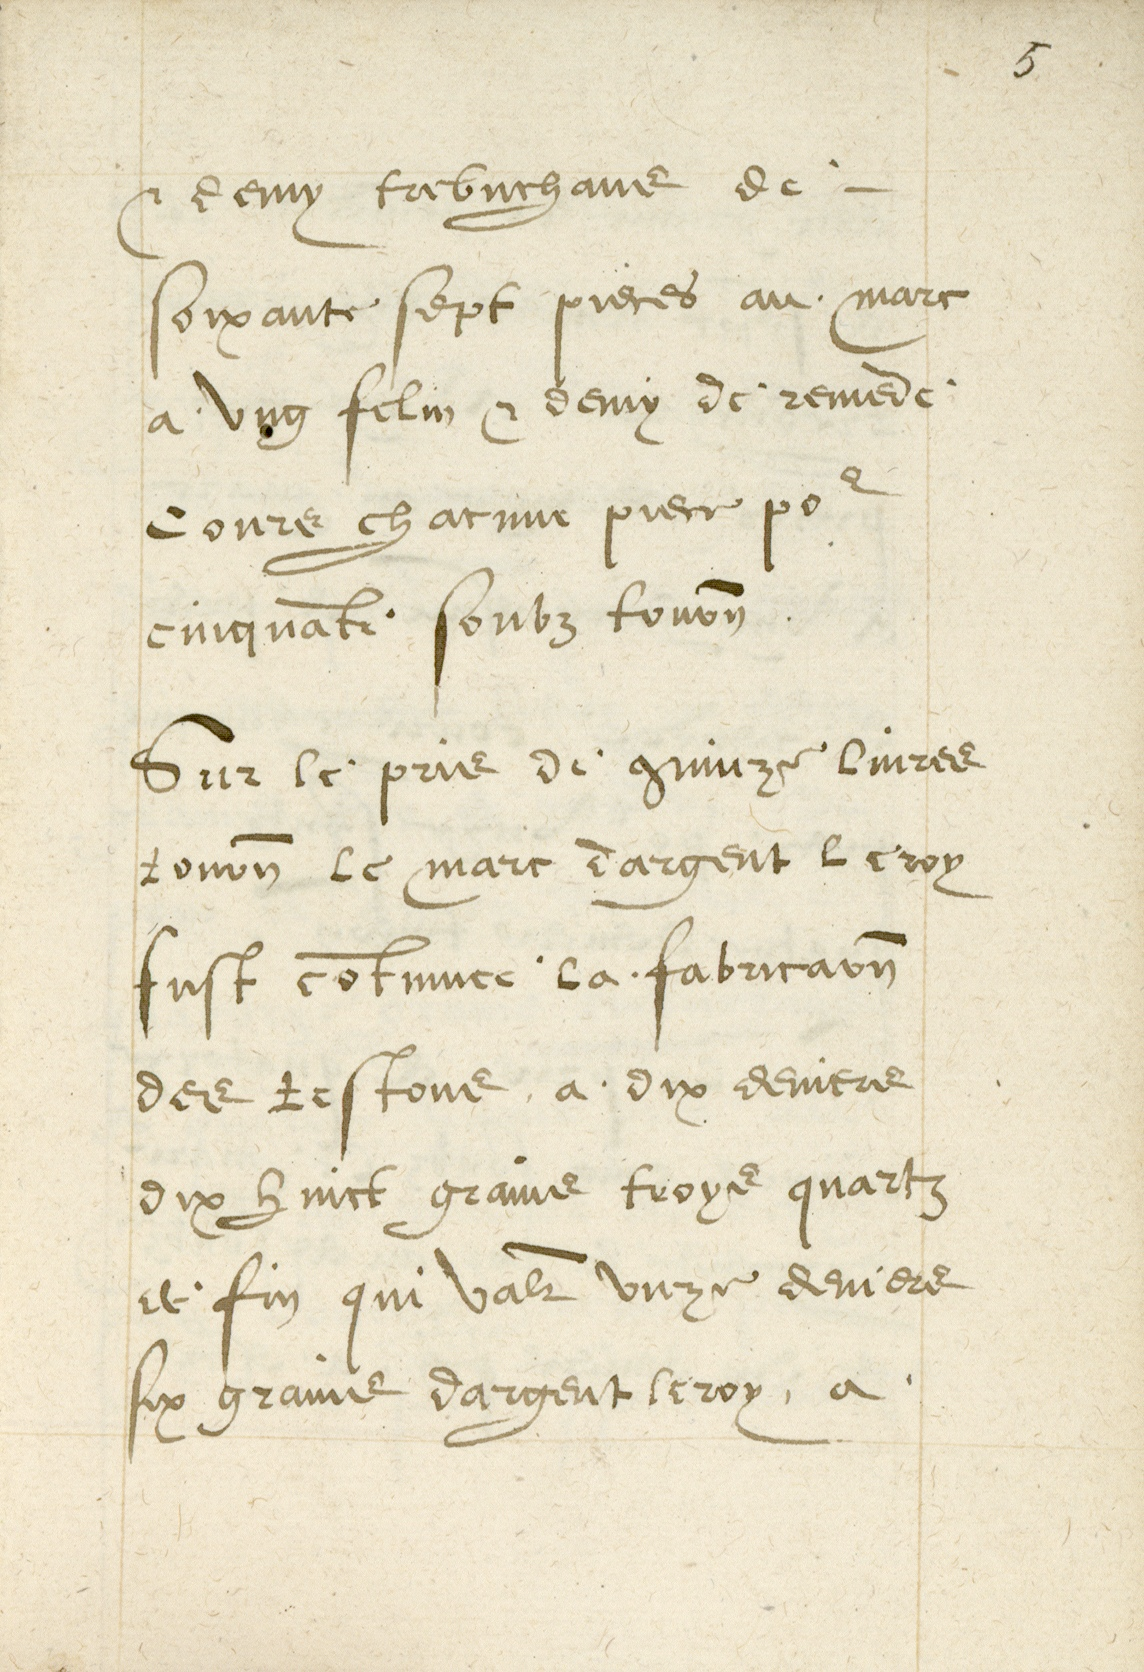 5
& demy trebuchans de
soixante sept pieces au marc
a vng felin & demy de remede
Cours chacune piece por
cinquāte soubz tourn̄
Sur le pris de quinze liures
tourn̄ le marc dargent le roy
fust cōtinuee la fabricaōn
des testons a dix deniers
dix huict grains troys quartz
de fin qui vall̄ vnze deniers
six grains dargent le roy, a